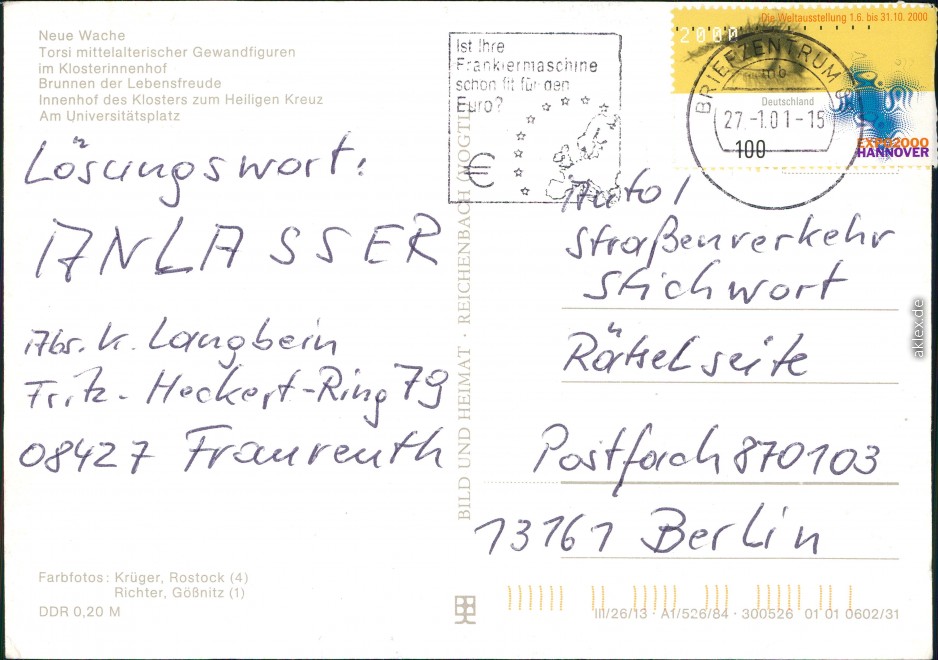 Neue Wache
Torsi mittelalterischer Gewandfiguren
im Klosterinnenhof
Brunnen der Lebensfreude
Innenhof des Klosters zum Heiligen Kreuz
Am Universitätsplatz
Lösungswort:
ANLASSER
Abs. K. Langbein
Fritz-Heckert-Ring 79
08427 Fraureuth
Farbfotos: Krüger, Rostock (4)
Richter, Gößnitz (1)
DDR 0,20 M
BILD UND HEIMAT · REICHENBACH (VOGTL)
Ist Ihre
Frankiermaschine
schon fit für den
Euro?
€
Die Weltausstellung 1.6. bis 31.10. 2000
2000
BRIEFZENTRUM
mb
Deutschland
27.-1.01-15
100
EXPO2000
HANNOVER
Auto/
Straßenverkehr
Stichwort
Rätselseite
Postfach 870103
13161 Berlin
III/26/13 · A1/526/84 · 300526 01 01 0602/31
aklex.de